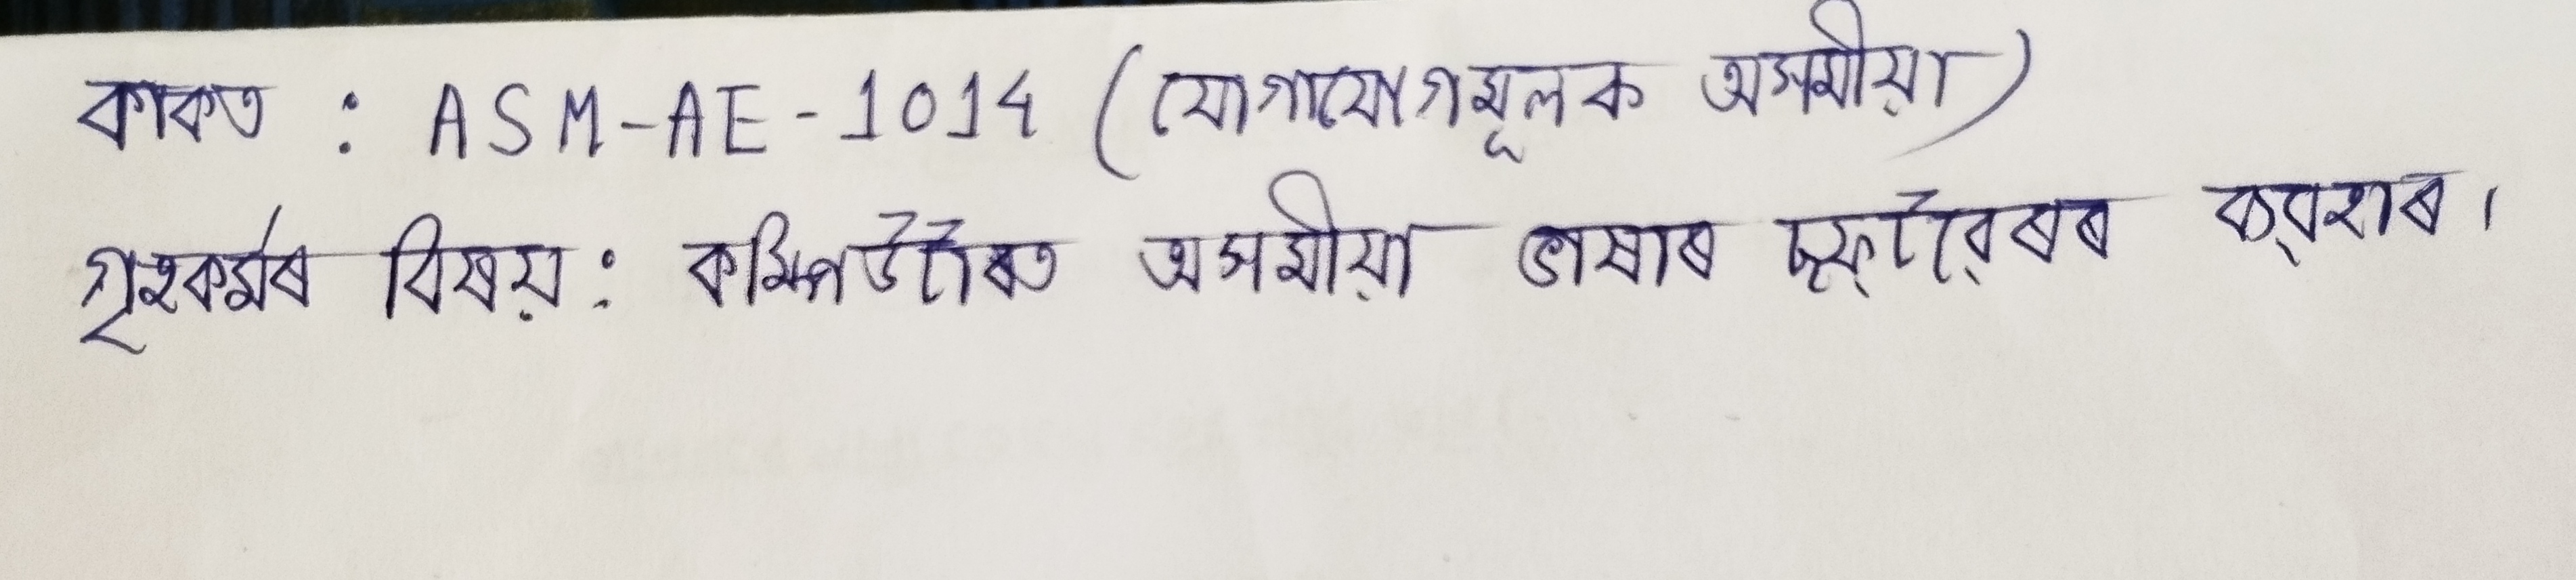 কাকত : ASM-AE-1014 (যোগাযোগমূলক অসমীয়া)
গৃহকৰ্মৰ বিষয় : কম্পিউটাৰত অসমীয়া ভাষাৰ